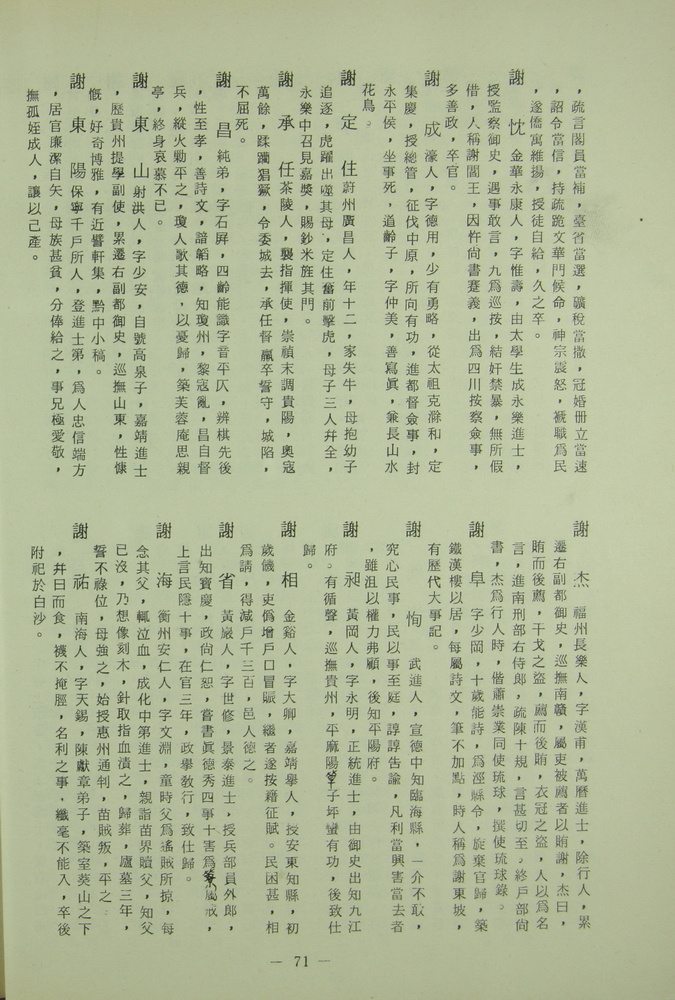 ，疏言閣員當補，臺省當選，礦稅當撤，冠婚冊立當速
，詔令當信，持疏跪文華門候命，神宗震怒，褫職為民
，遂僑寓維揚，授徒自給，久之卒。
謝　忱　金華永康人，字惟壽，由太學生成永樂進士，
授監察御史，遇事敢言，九為巡按，結奸禁暴，無所假
借，人稱謝閻王，因忤尚書蹇義，出為四川按察僉事，
多善政，卒官。
謝　成　濠人，字德用，少有勇略，從太祖克滁和，定
集慶，授總管，征伐中原，所向有功，進都督僉事，封
永平侯，坐事死，道齡子，字仲美，善寫真，兼長山水
花鳥。
謝　定　住蔚州廣昌人，年十二，家失牛，母抱幼子
追逐，虎躍出噬其母，定住奮前擊虎，母子三人幷全，
永樂中召見嘉獎，賜鈔米旌其門。
謝　承　任茶陵人，襲指揮使，崇禎末調貴陽，奧寇
萬餘，蹂躪猖獗，令委城去，承任督羸卒誓守，城陷，
不屈死。
謝　昌　純弟，字石屛，四齡能識字音平仄，辨棋先後
，性至孝，善詩文，諳韜略，知瓊州，黎寇亂，昌自督
兵，縱火勦平之，瓊人歌其德，以憂歸，築芙蓉庵思親
亭，終身哀慕不已。
謝　東　山射洪人，字少安，自號高泉子，嘉靖進士
，歷貴州提學副使，累遷右副都御史，巡撫山東，性慷
慨，好奇博雅，有近譬軒集，黔中小稿。
謝　東　陽保寧千戶所人，登進士第，為人忠信端方
，居官廉潔自矢，母族甚貧，分俸給之，事兄極愛敬，
撫孤姪成人，讓以己產。
謝　杰　福州長樂人，字漢甫，萬曆進士，除行人，累
遷右副都御史，巡撫南贛，屬吏被薦者以賄謝，杰曰，
賄而後薦，干戈之盜，薦而後賄，衣冠之盜，人以為名
言，進南刑部右侍郎，疏陳十規，言甚切至。終戶部尚
書，杰為行人時，偕蕭崇業同使琉球，撰使琉球錄。
謝　阜　字少岡，十歲能詩，為涇縣令，旋棄官歸，築
鐵漢樓以居，每屬詩文，筆不加點，時人稱為謝東坡，
有歷代大事記。
謝　恂　武進人，宣德中知臨海縣，一介不取，
究心民事，民以事至庭，諄諄告諭，凡利當興害當去者
，雖沮以權力弗顧，後知平陽府。
謝　昶　黃岡人，字永明，正統進士，由御史出知九江
府。有循聲，巡撫貴州，平麻陽箄子坪蠻有功，後致仕
歸。
謝　相　金谿人，字大卿，嘉靖舉人，授安東知縣，初
歲饑，吏僞增戶口冒賑，繼者遂按籍征賦。民困甚，相
為請，得減戶千三百，邑人德之。
謝　省　黃巖人，字世修，景泰進士，授兵部員外郎，
出知寶慶，政尚仁恕，嘗書眞德秀四事十害為屬戒，
上言民隱十事，在官三年，政舉教行，致仕歸。
謝　海　衡州安仁人，字文淵，童時父為遙賊所掠，每
念其父，輒泣血，成化中第進士，親詣苗界贖父，知父
已沒，乃想像刻木，針取指血漬之，歸葬，廬墓三年，
誓不祿位，母強之，始授惠州通判，苗賊叛，平之
謝　祐　南海人，字天錫，陳獻章弟子，築室葵山之下
，幷日而食，襪不掩脛，名利之事，纖毫不能入，卒後
附祀於白沙。
— 71 —